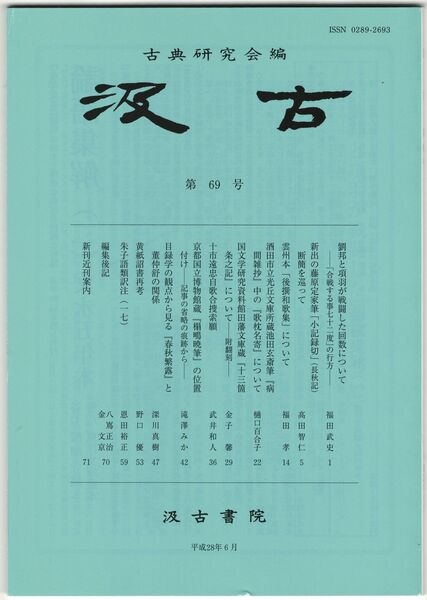 ISSN 0289-2693
古典研究会編
汲古
第69号
劉邦と項羽が戦闘した回数について
――「合戦する事七十二度」の行方―― 福田武史 1
新出の藤原定家筆「小記録切」(長秋記)
断簡を巡って 高田智仁 5
雲州本「後撰和歌集」について 福田 孝 14
酒田市立光丘文庫所蔵池田玄斎筆『病
間雑抄』中の『歌枕名寄』について 樋口百合子 22
国文学研究資料館田藩文庫蔵『十三箇
条之記』について――附翻刻―― 金子 馨 29
十市遠忠自歌合捜索願 武井和人 36
京都国立博物館蔵『榻鴫暁筆』の位置
付け――記事の省略の痕跡から―― 滝澤みか 42
目録学の観点から見る『春秋繁露』と
董仲舒の関係 深川真樹 47
黄紙詔書再考 野口 優 53
朱子語類訳注(一七) 恩田裕正 59
編集後記 八嶌正治 金 文京 70
新刊近刊案内 71
汲古書院
平成28年6月